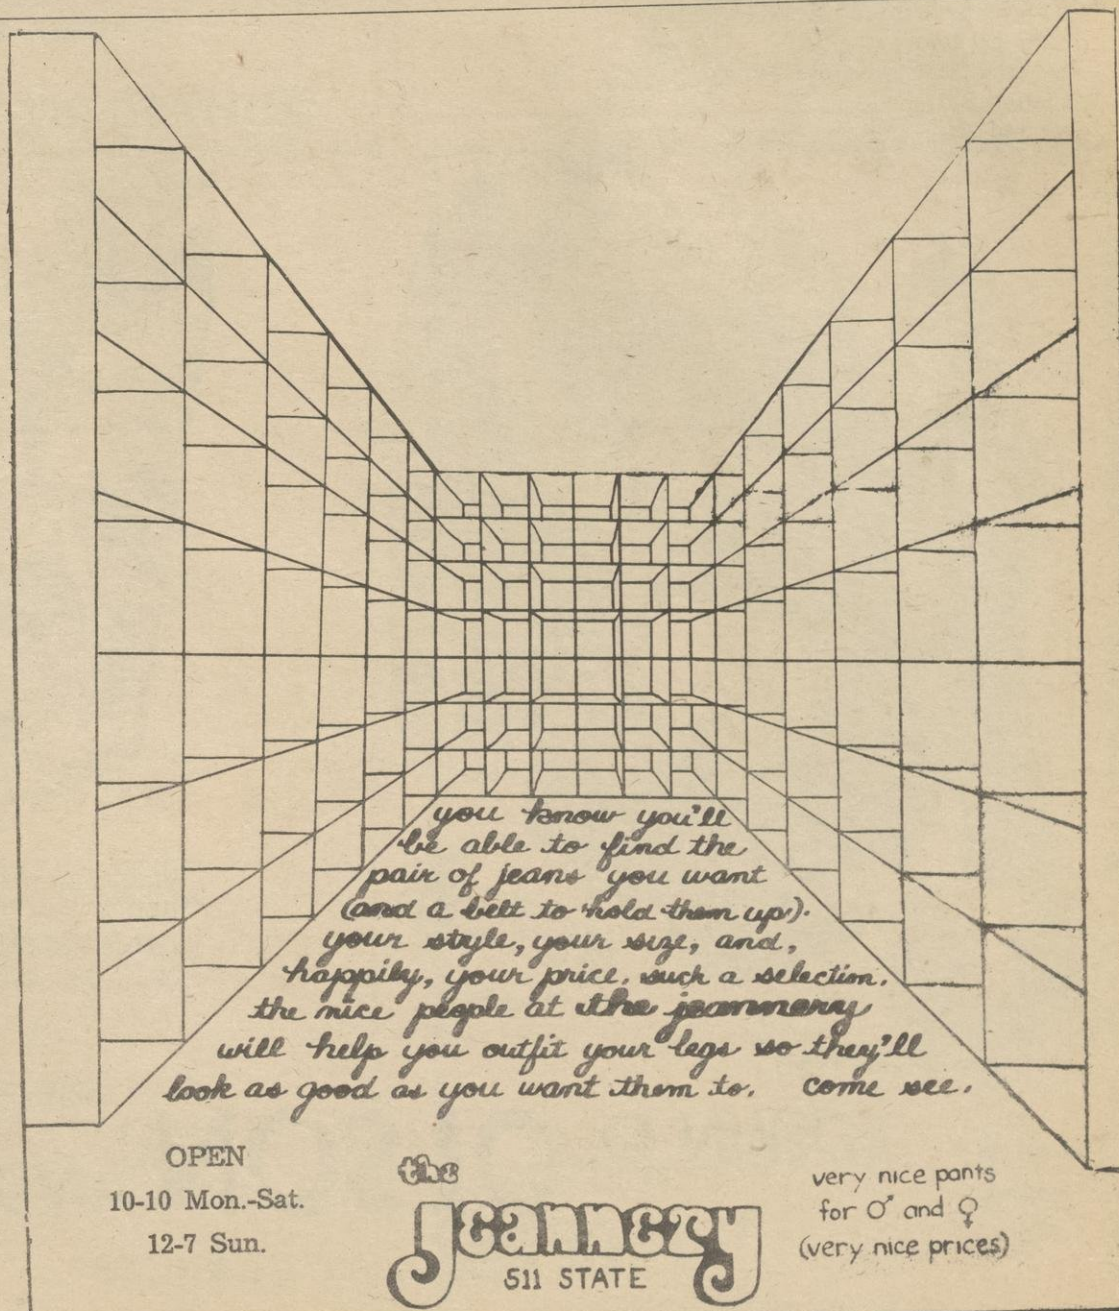 you know you'll
be able to find the
pair of jeans you want
(and a belt to hold them up).
your style, your size, and,
happily, your price. such a selection.
the nice people at the jeannery
will help you outfit your legs so they'll
look as good as you want them to. come see.
OPEN
10-10 Mon.-Sat.
12-7 Sun.
the
jeannery
511 STATE
very nice pants
for ♂ and ♀
(very nice prices)